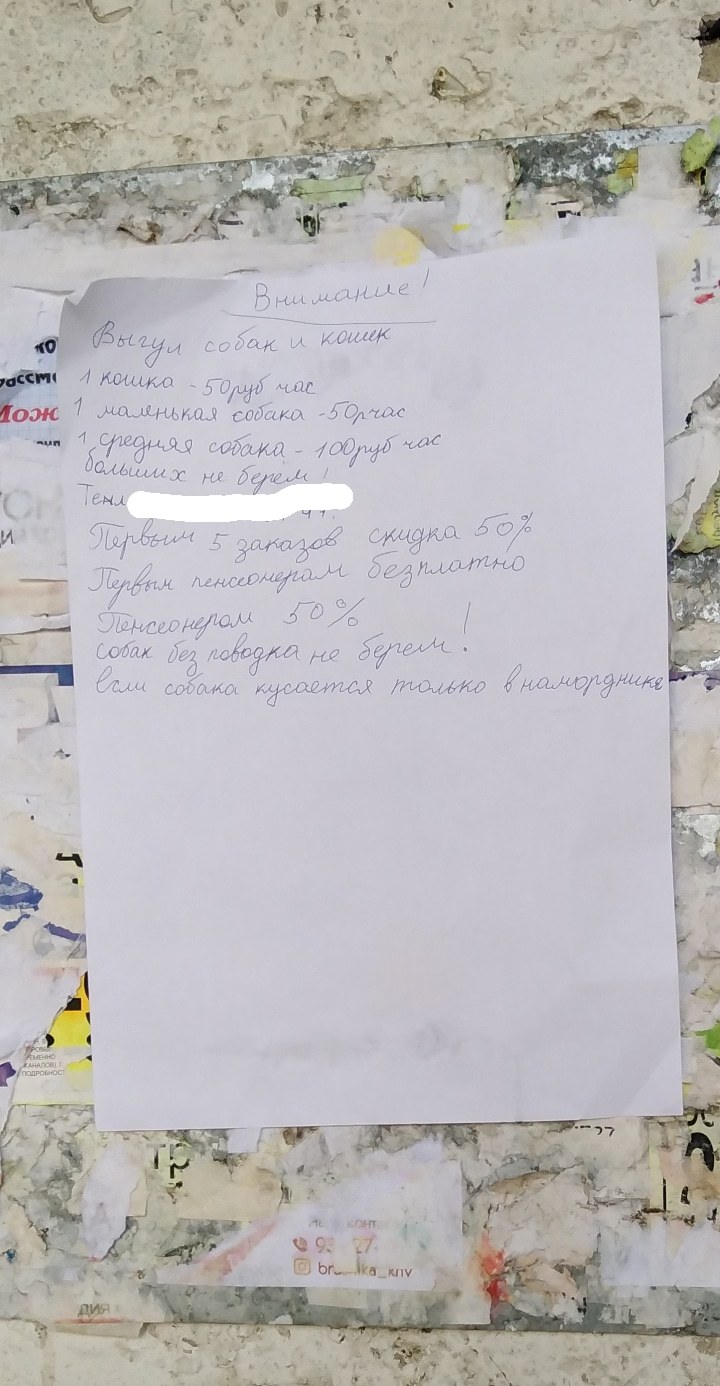 Внимание!
Выгул собак и кошек
1 кошка - 50руб час
1 маленькая собака - 50рчас
1 средняя собака - 100руб час
больших не берём!
Первым 5 заказов скидка 50%
Первым пенсеонерам безплатно
Пенсеонером 50%
собак без поводка не берем!
Если собака кусается только в наморднике
Мож
ПОДРОБНОСТ